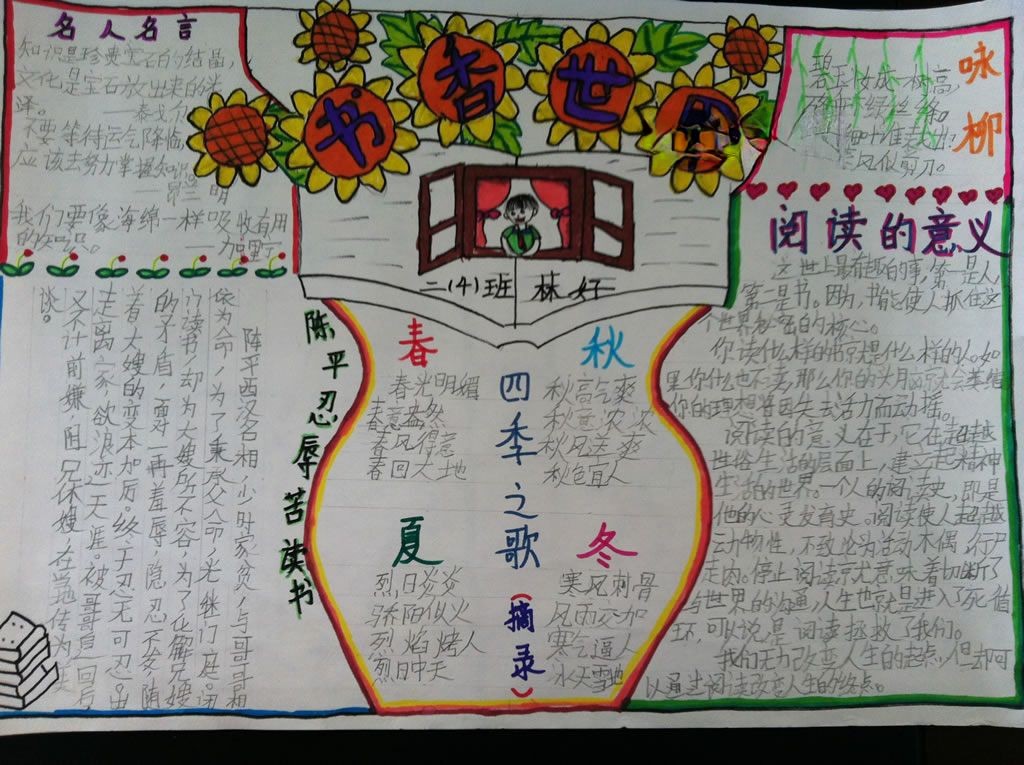 书香世界
名人名言
知识是珍贵宝石的结晶,
文化是宝石放出来的光
泽。
——泰戈尔
不要等待运气降临,
应该去努力掌握知识。
我们要像海绵一样吸收有用
的知识。
——加里宁
咏柳
碧玉妆成一树高,
二(4)班 林好
阅读的意义
这世上最有趣的事,第一是人,
第二是书。因为,书能使人抓住这
个世界秘密的核心。
你读什么样的书就是什么样的人。如
果你什么也不读,那么你的头脑就会萎缩
你的理想将因失去活力而动摇。
阅读的意义在于,它在超越
世俗生活的层面上,建立起精神
生活的世界。一个人的阅读史,即是
他的心灵发育史。阅读使人超越
动物性,不致沦为活动木偶,行尸
走肉。停止阅读就意味着切断了
与世界的沟通,人生也就是进入了死循
环,可以说是阅读拯救了我们。
我们无力改变人生的起点,但却可
以通过阅读改变人生的终点。
陈平忍辱苦读书
陈平西汉名相,少时家贫,与哥哥相
依为命,为了秉承父命,光继门庭。闭
门读书,却为大嫂所不容,为了化解兄嫂
的矛盾,面对一再羞辱,隐忍不发,随
着大嫂的变本加厉。终于忍无可忍。出
走离家,欲浪迹天涯。被哥哥追回后
又不计前嫌,阻兄休嫂,在当地传为美
谈。
四季之歌(摘录)
春
春光明媚
春意盎然
春风得意
春回大地
夏
烈日炎炎
骄阳似火
烈焰烤人
烈日中天
秋
秋高气爽
秋意浓浓
秋风送爽
秋色宜人
冬
寒风刺骨
风雨交加
寒气逼人
冰天雪地